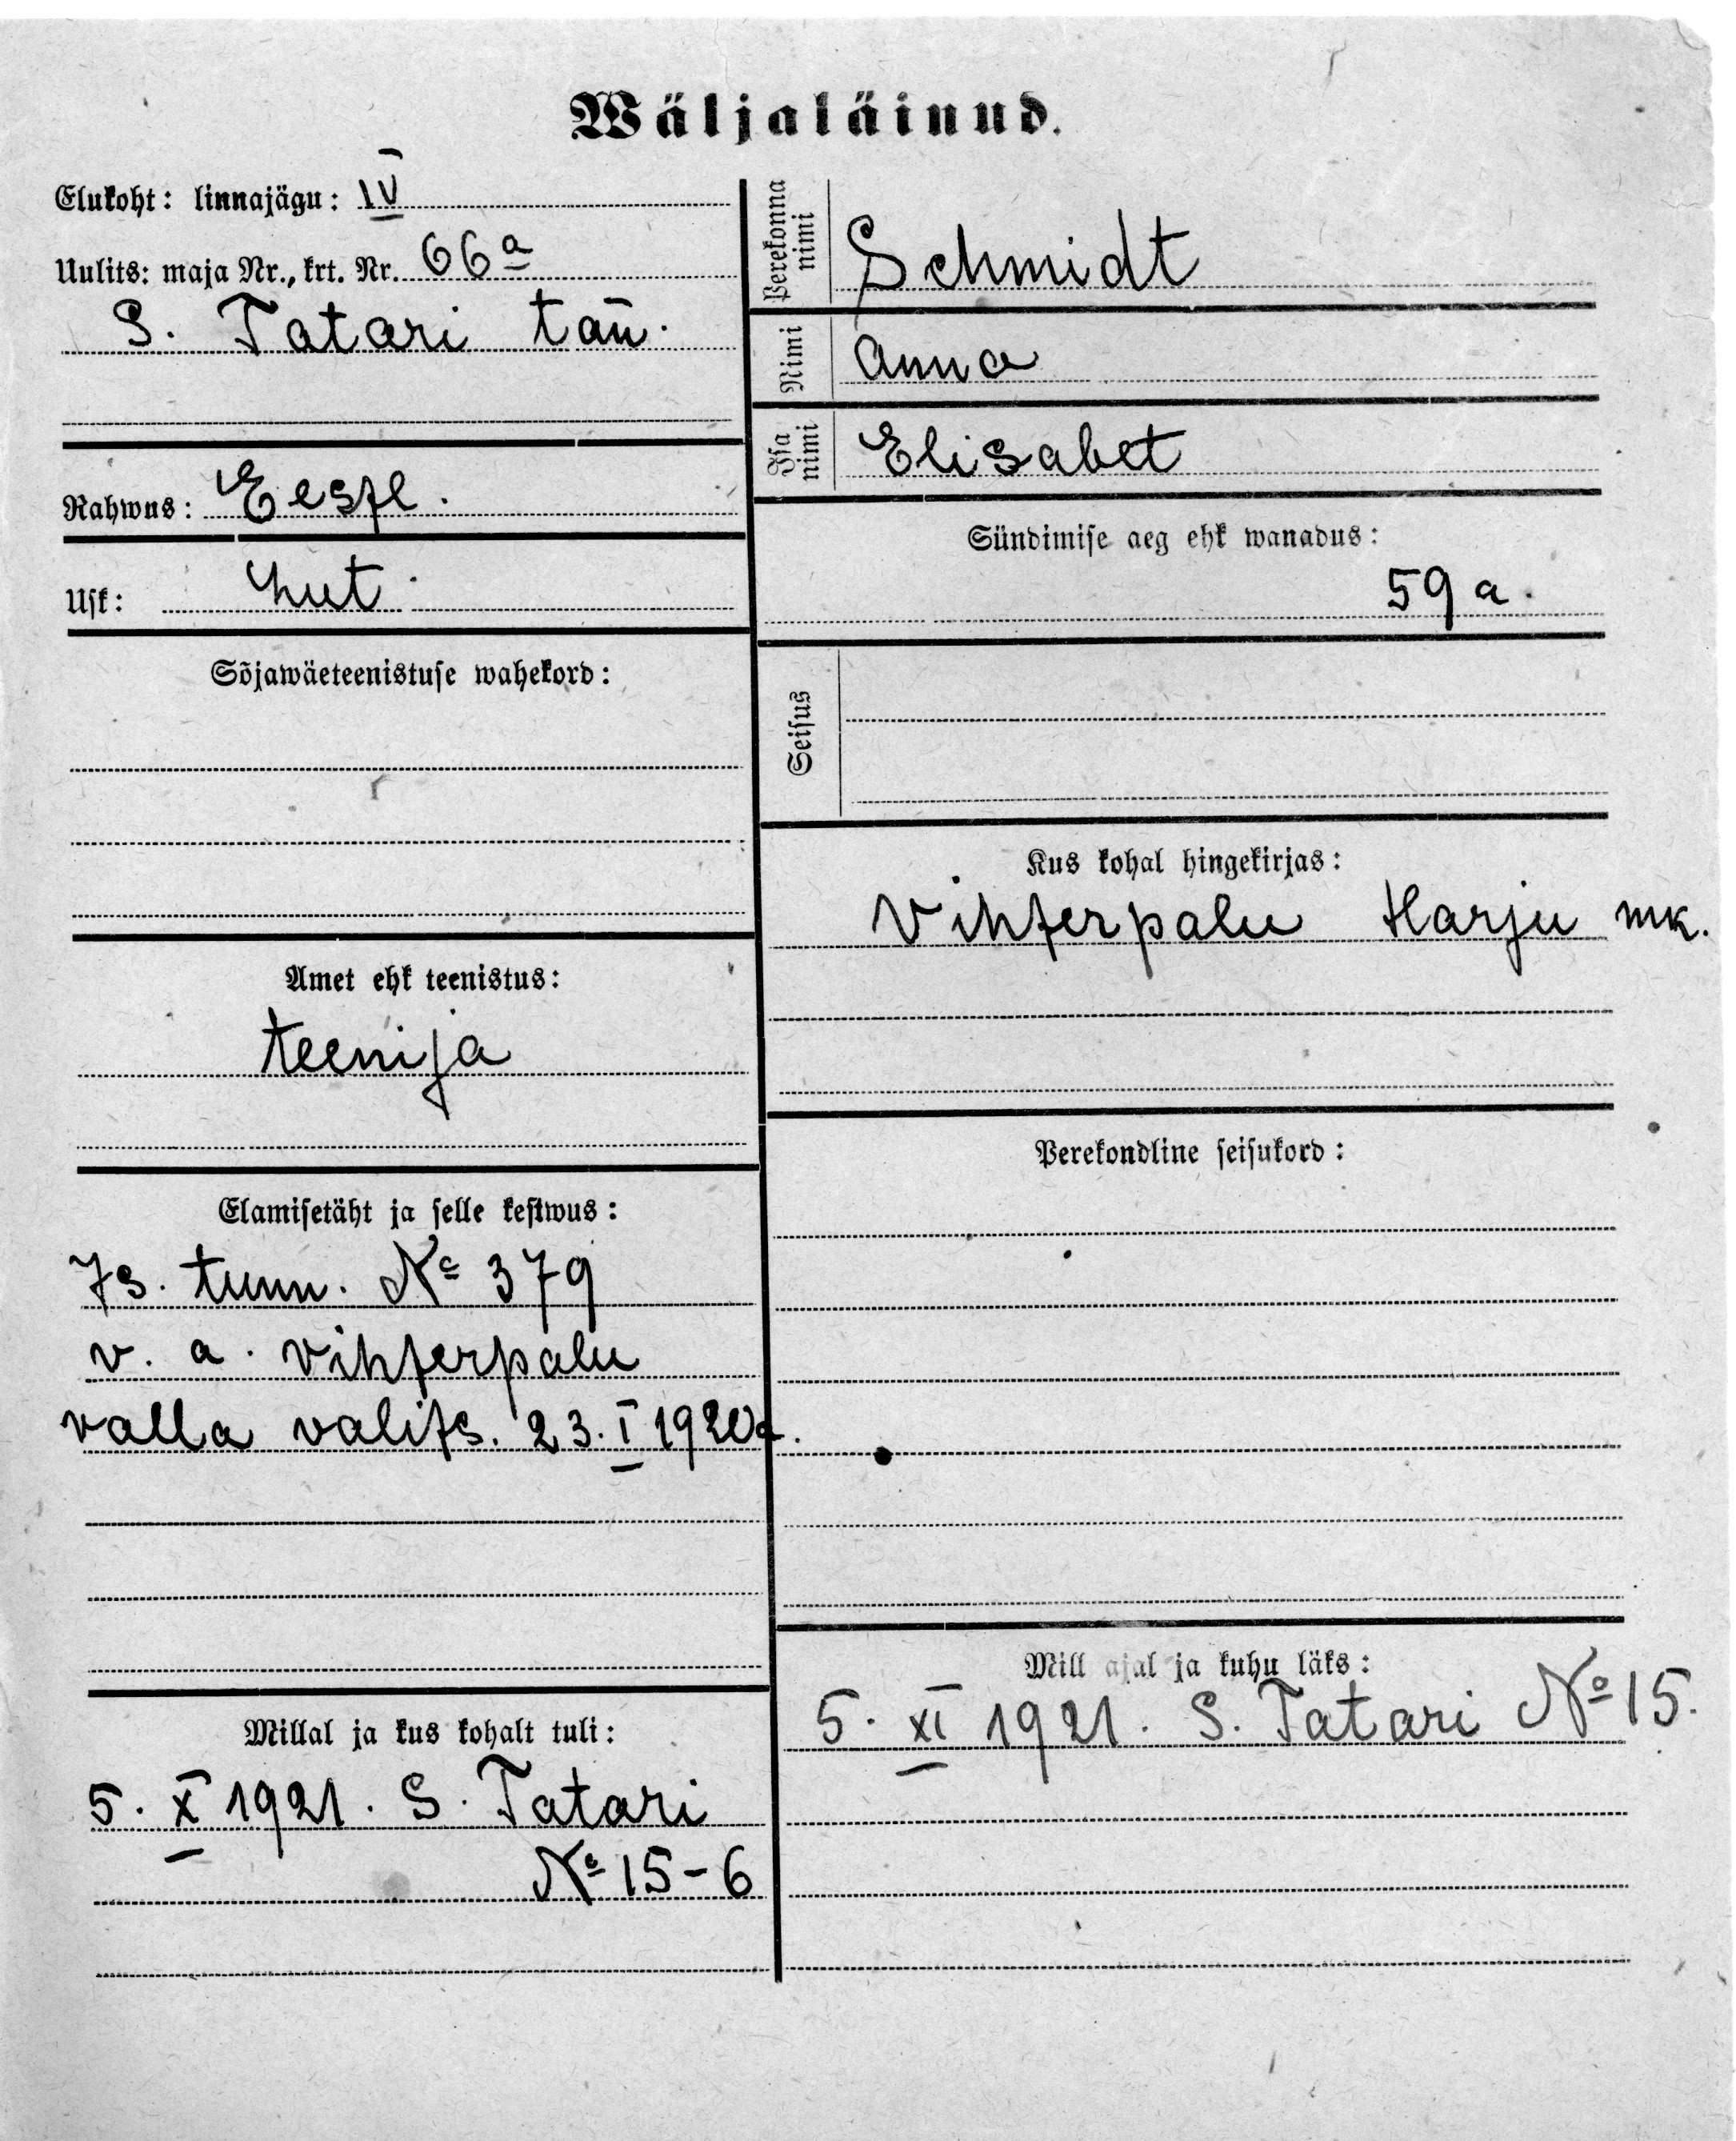 Wäljaläinud.
Elukoht: linnajägu: IV
Uulits: maja Nr., krt. Nr. 66a
S. Tatari tän.
Rahwus: Eestl.
Usk: Lut.
Sõjawäeteenistuse wahekord:
Amet ehk teenistus:
teenija
Elamisetäht ja selle kestwus:
Is. tunn. No 379
v. a. Vihterpalu
valla valits. 23. I 1920 a.
Millal ja kus kohalt tuli:
5. X 1921. S. Tatari
No 15-6
Perekonna nimi Schmidt
Nimi Anna
Isa nimi Elisabet
Sündimise aeg ehk wanadus:
59 a.
Seisus
Kus kohal hingekirjas:
Vihterpalu Harju mk.
Perekondline seisukord:
Mill ajal ja kuhu läks:
5. XI 1921. S. Tatari No 15.